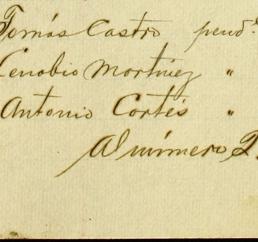 Tomás Castro pend.
Cenobio Martinez "
Antonio Cortés "
Al número 2.